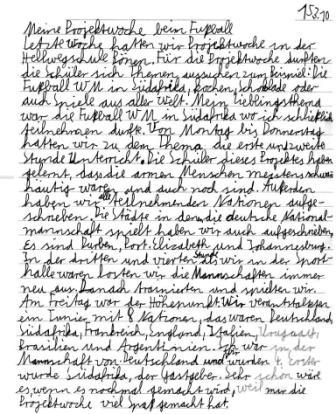 15.3.10
Meine Projektwoche beim Fußball
Letzte Woche hatten wir Projektwoche in der
Hellwegschule Bönen. Für die Projektwoche durften
die Schüler sich Themen aussuchen zum Beispiel: Die
Fußball WM in Südafrika, kochen, oder
auch Spiele aus aller Welt. Mein Lieblingsthema
war die Fußball WM in Südafrika wo ich schließlich
teilnehmen durfte. Von Montag bis Donnerstag
hatten wir zu dem Thema die erste und zweite
Stunde Unterricht. Die Schüler dieses Projektes haben
gelernt, das die armen Menschen meistens schwarz
häutig waren und auch noch sind. Außerdem
haben wir alle teilnehmenden Nationen aufge-
schrieben. Die Städte in den die deutsche National-
mannschaft spielt haben wir auch aufgeschrieben.
Es sind Durben, Port Elizabeth und Johannesburg.
In der dritten und vierten Stunde als wir in der Sport-
halle waren losten wir die Mannschaften immer
neu aus. Danach trainierten und spielten wir.
Am Freitag war der Höhepunkt. Wir veranstalteten
ein Tunier mit 8 Nationen, das waren Deutschland,
Südafrika, Frankreich, England, Italien, Uruguay,
Brasilien und Argentinien. Ich war in der
Mannschaft von Deutschland und wir wurden 4. Erster
wurde Südafrika, der Gastgeber. Sehr schön wäre
es wenn es nochmal gemacht wird, weil mir die
Projektwoche viel Spaß gemacht hat.